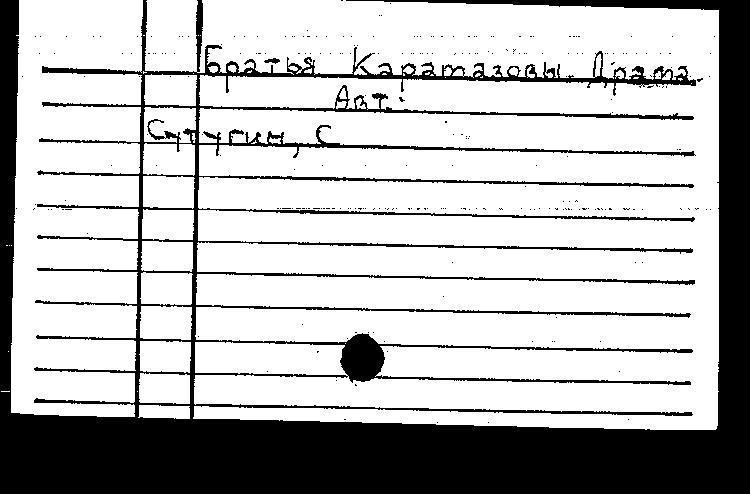 Братья Карамазовы. Драма.
Авт.:
Сутугин, С